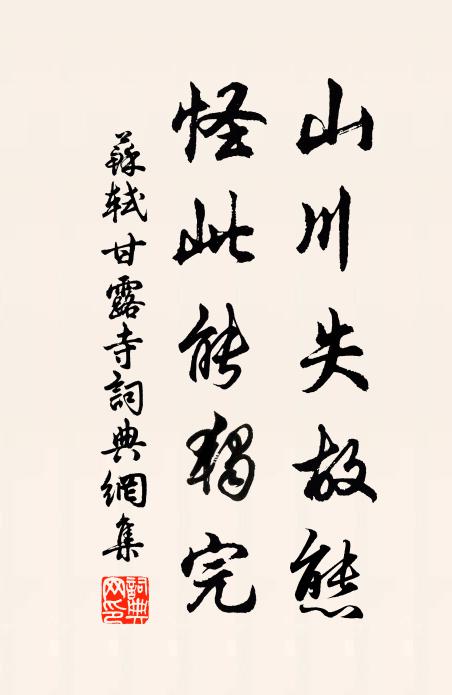 山川失故態
怪此能獨完
蘇軾甘露寺詞典網集
詞典網印